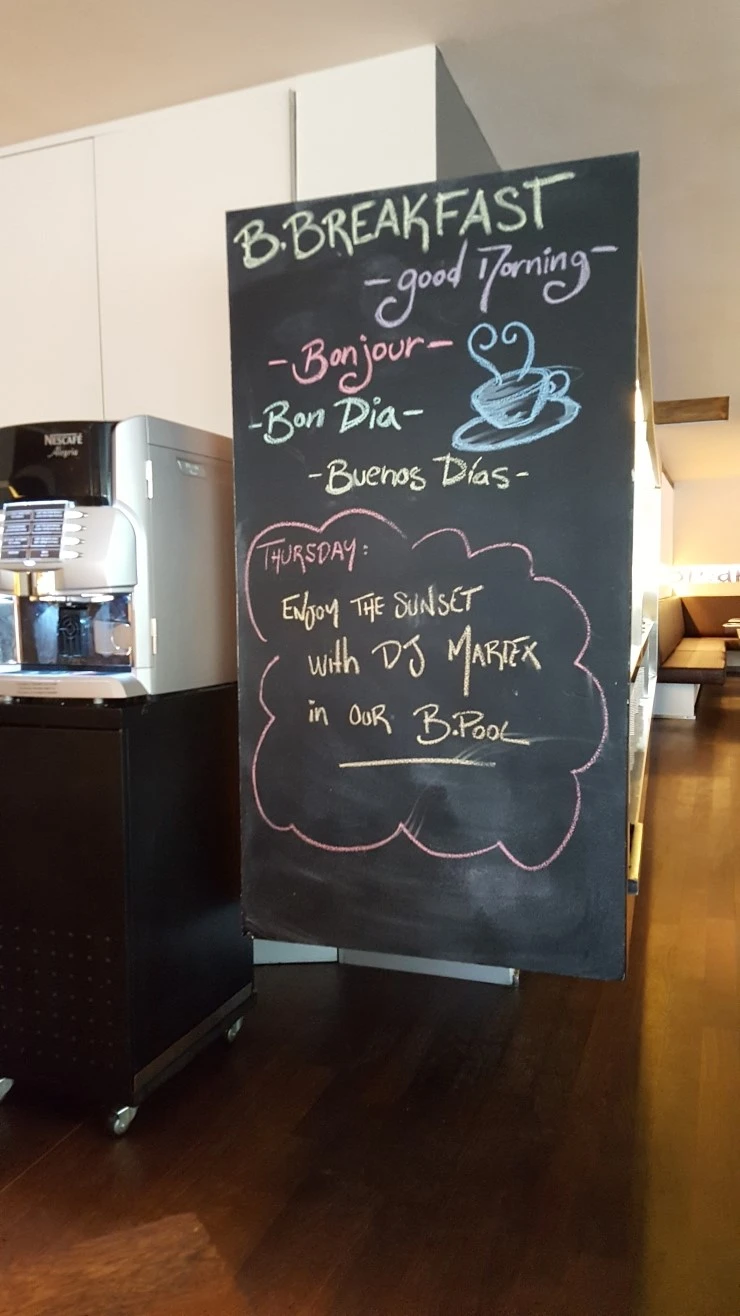 B.BREAKFAST
-good Morning-
-Bonjour-
-Bon Dia-
-Buenos Días-
THURSDAY:
ENJOY THE SUNSET
with DJ MARTEX
in OUR B.POOL
NESCAFÉ
Alegria